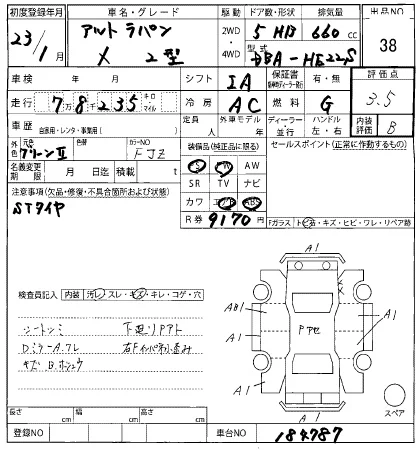 初度登録年月 車名・グレード 駆動 ドア数・形状 排気量 出品NO
23/1 アルトラパン X 2型 2WD・4WD 5 HB 660 cc 38
型式 DBA-HE22S
車検 年 月 シフト IA 保証書 有・無 評価点
走行 7万8235 キロ・マイル 冷房 AC 燃料 G 3.5
車歴 自家用・レンタ・事業用( ) 定員 人 外車モデル 年 ディーラー・並行 ハンドル 左・右 内装評価 B
外色 元色 グリーンⅡ 色替 カラーNO FJZ 装備品(純正品に限る) セールスポイント(正常に動作するもの)
PS PW AW
名義変更期限 月 日迄 積載 t SR TV ナビ
注意事項(欠品・修復・不具合箇所および状態) カワ エアB ABS
STタイヤ R券 9170 円 Fガラス トビ石・キズ・ヒビ・ワレ・リペア跡
検査員記入 内装 汚レ・スレ・キズ・キレ・コゲ・穴
シートシミ 下廻りPアト
DミラーAフレ
キズB
A1
A1
AB1
Pアセ
A1
A1
A1
スペア
長さ cm 幅 cm 高さ cm
登録NO 車台NO 184787